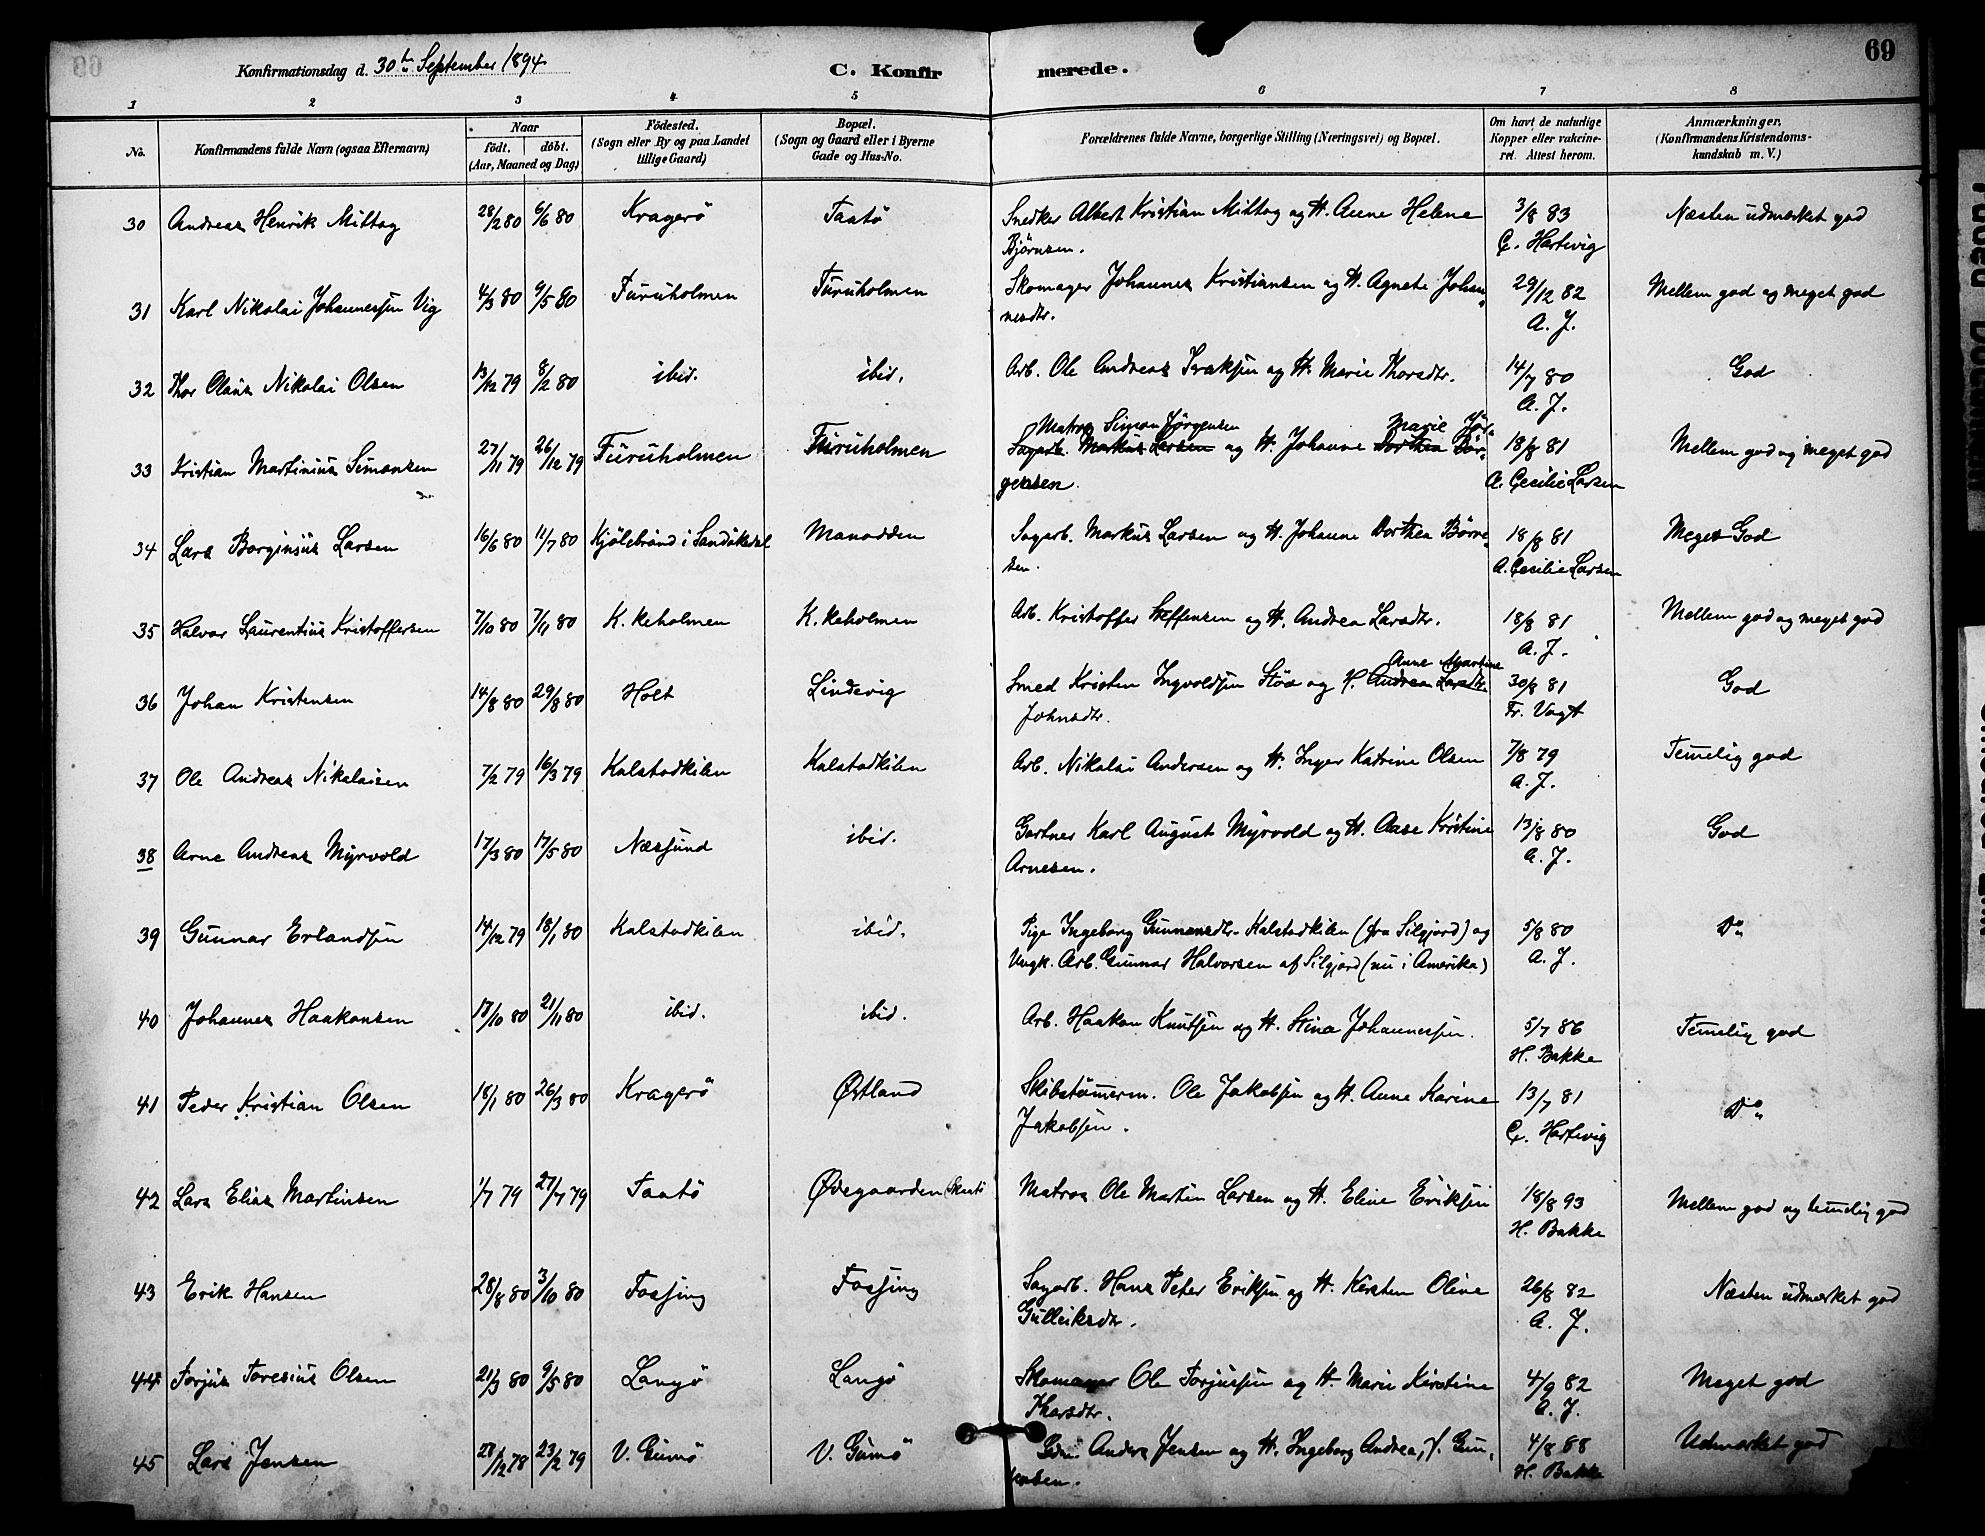 Konfirmationsdag d. 30te September 1894 C. Konfirmerede. 69
1 2 3 4 5 6 7 8
No. Konfirmandens fulde Navn (ogsaa Efternavn) Naar født. døbt. (Aar, Maaned og Dag) Fødested. (Sogn eller By og paa Landet tillige Gaard) Bopæl. (Sogn og Gaard eller i Byerne Gade og Hus-No. Forældrenes fulde Navne, borgerlige Stilling (Næringsvei) og Bopæl. Om havt de naturlige Kopper eller vakcineret. Attest herom. Anmærkninger. (Konfirmandens Kristendomskundskab m. V.)
30 Andreas Henrik Mittag 28/2 80 6/6 80 Kragerö Taatö Snedker Albert Kristian Mittag og H. Anne Helene 3/8 83 Næsten udmærket god
Bjørnsen. C. Hartvig
31 Karl Nikolai Johannessen Vig 4/3 80 9/5 80 Furuholmen Furuholmen Skomager Johannes Kristiansen og H. Agnete Johan 29/12 82 Mellem god og meget god
nesdtr. A. J.
32 Thor Olaus Nikolai Olsen 13/12 79 8/2 80 ibid. ibid. Arb. Ole Andreas Isaksen og H. Marie Thorsdtr. 14/7 80 God
A. J.
Matros Simon Jørgensen Marie Jør-
33 Kristian Martinius Simonsen 27/11 79 26/12 79 Furuholmen Furuholmen Sagarb. Markus Larsen og H. Johanne Dorthea Bör- 18/8 81 Mellem god og meget god
gensen. A. Cecilie Larsen
34 Lars Borginius Larsen 16/6 80 11/7 80 Kjölebrönd i Sandökedal Manodden Sagarb. Markus Larsen og H. Johanne Dorthea Börre- 18/8 81 Meget God
sen. A. Cecilie Larsen
35 Halvor Laurentius Kristoffersen 7/10 80 7/11 80 K. keholmen K. keholmen Arb. Kristoffer Steffensen og H. Andrea Larsdtr. 18/8 81 Mellem god og meget god
A. J.
Anne Martine
36 Johan Kristensen 14/8 80 29/8 80 Holt Lindevig Smed Kristen Ingvoldsen Stöa og H. Andrea Larsdtr. 30/8 81 God
Johnsdtr. Fr. Vogt
37 Ole Andreas Nikolaisen 7/2 79 16/3 79 Kalstadkilen Kalstadkilen Arb. Nikolai Andersen og H. Inger Katrine Olsen 7/8 79 Temelig god
A. J.
38 Arne Andreas Myrvold 17/3 80 17/5 80 Næssund ibid. Gartner Karl August Myrvold og H. Aase Kristine 13/8 80 God
Arnesen. A. J.
39 Gunnar Erlandsen 14/12 79 18/1 80 Kalstadkilen ibid. Pige Ingeborg Gunnarsdtr. Kalstadkilen (fra Silgjord) og 5/8 80 Do
Ungk. Arb. Gunnar Halvorsen af Silgjord (nu i Amerika) A. J.
40 Johannes Haakonsen 17/10 80 21/11 80 ibid. ibid. Arb. Haakon Knutsen og H. Stina Johannessen. 5/7 86 Temelig god
H. Bakke
41 Peder Kristian Olsen 18/1 80 26/3 80 Kragerö Østland Skibstömerm. Ole Jakobsen og H. Anne Karine 13/7 81 Do
Jakobsen. C. Hartvig
42 Lars Elias Martinsen 1/7 79 27/7 79 Taatö Ødegaarden (Skaatö Matros Ole Martin Larsen og H. Eline Eriksen 18/8 93 Mellem god og temelig god
H. Bakke
43 Erik Hansen 28/8 80 3/10 80 Fossing Fossing Sagarb. Hans Peter Eriksen og H. Kirsten Oline 26/8 82 Næsten udmærket god
Gulleiksdtr. A. J.
44 Torjus Toresius Olsen 21/3 80 9/5 80 Langö Langö Skomager Ole Torjussen og H. Marie Kirstine 4/9 82 Meget god
Thorsdtr. A. J.
45 Lars Jensen 28/12 78 23/2 79 V. Gumö V. Gumö Anders Jensen og H. Ingeborg Andrea, f. Gun- 4/8 88 Udmærket god
H. Bakke